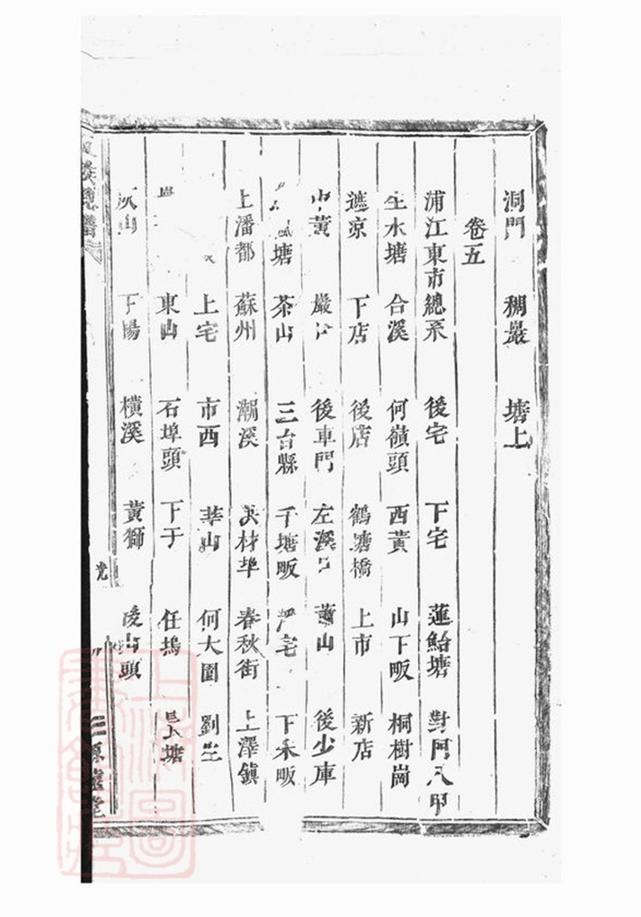 洞門 稠巖 塘上
卷五
浦江東市總系 後宅 下宅 蓮鮐塘 對阿八甲
水塘 合溪 何嶺頭 西黄 山下畈 桐樹崗
遮京 下店 後店 鶴塘橋 上市 新店
中黄 巖 後車門 左溪 黄山 後少庫
塘 茶山 三台縣 千塘畈 宅 下禾畈
上潘都 蘇州 潮溪 春秋街 上澤鎮
上宅 市西 華山 何大園 劉
東山 石埠頭 下于 任塢 塘
下陽 橫溪 黄獅 陵山頭